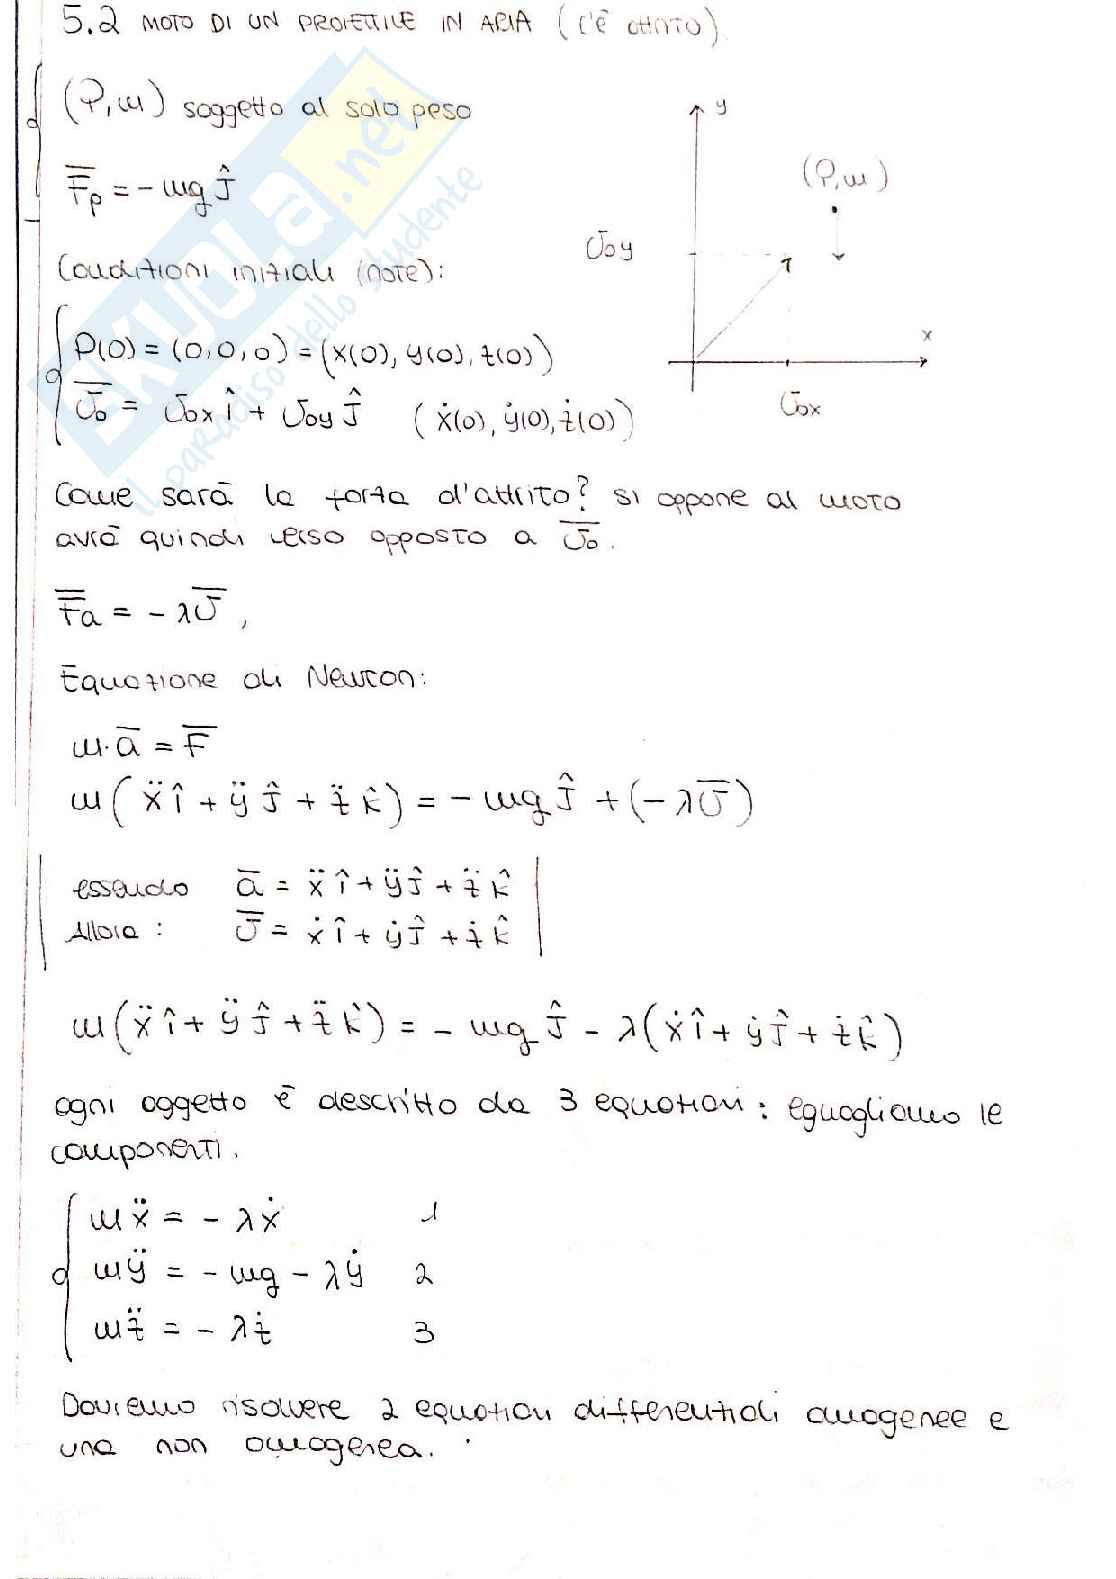 5.2 MOTO DI UN PROIETTILE IN ARIA (C'È ATTRITO).
(P, m) soggetto al solo peso
F̄p = - mg ĵ
Condizioni iniziali (note):
P(0) = (0,0,0) = (x(0), y(0), z(0))
v̄₀ = v₀x î + v₀y ĵ (ẋ(0), ẏ(0), ż(0))
y
(P, m)
v₀y
x
v₀x
Come sarà la forza d'attrito? si oppone al moto
avrà quindi verso opposto a v̄₀.
F̄a = - λv̄,
Equazione di Newton:
m·ā = F̄
m(ẍ î + ÿ ĵ + z̈ k̂) = - mg ĵ + (-λv̄)
essendo ā = ẍ î + ÿ ĵ + z̈ k̂
Allora : v̄ = ẋ î + ẏ ĵ + ż k̂
m(ẍ î + ÿ ĵ + z̈ k̂) = - mg ĵ - λ(ẋ î + ẏ ĵ + ż k̂)
ogni oggetto è descritto da 3 equazioni: eguagliamo le
componenti.
mẍ = - λẋ 1
mÿ = - mg - λẏ 2
mz̈ = - λż 3
Dovremo risolvere 2 equazioni differenziali omogenee e
una non omogenea.
SKUOLA.net
il paradiso dello studente